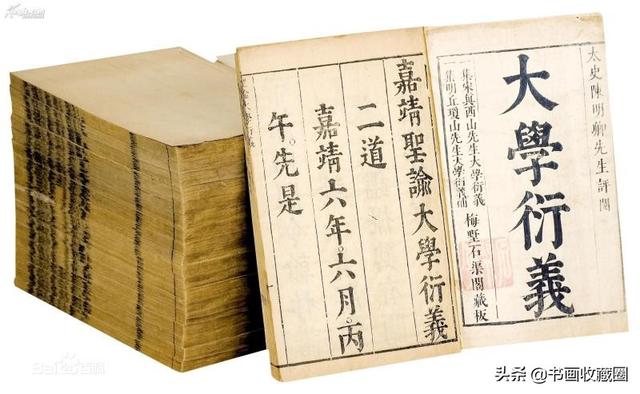 太史陳明卿先生評閱
大學衍義
集宋眞西山先生大學衍義
集明丘瓊山先生大學衍義補
梅墅石渠閣藏板
嘉靖聖諭大學衍義
二道
嘉靖六年。六月。丙
午。先是
Bai百科
头条 @书画收藏圈